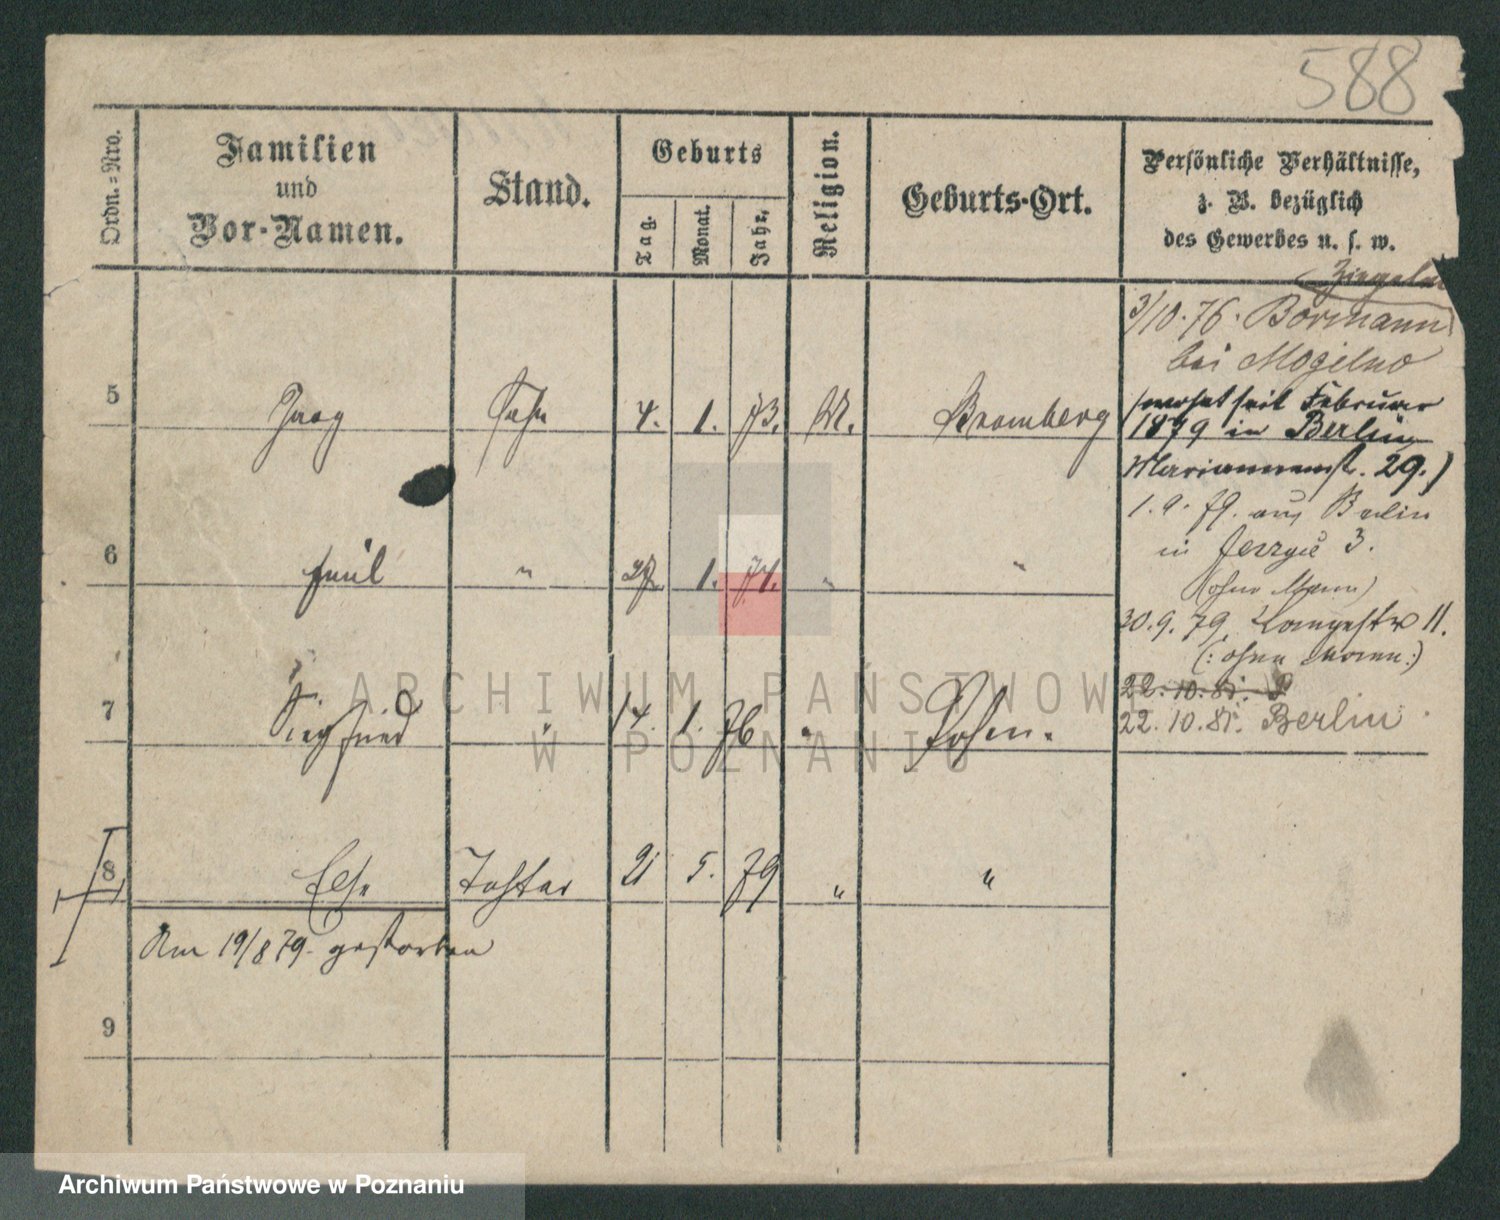 588
Ordn.=Nro.
Familien
und
Vor-Namen.
Stand.
Geburts
Tag.
Monat.
Jahr.
Religion.
Geburts-Ort.
Persönliche Verhältnisse,
z. B. bezüglich
des Gewerbes u. s. w.
3/10. 76. Bormann
bei Mogilno
5 Sohn 4. 1. 73. M. Bromberg
(wohnt seit Februar
1879 in Berlin
Mariannenst. 29.)
1. 9. 79. aus Berlin
in 3.
6 Emil " 27. 1. 74. " "
(ohne Mann)
30. 9. 79. Langestr 11.
(: ohne Mann :)
7 Siegfried " 14. 1. 76 " Posen.
22. 10. 81.
22. 10. 81. Berlin
8 Else Tochter 21 5. 79 " "
Am 19/8 79. gestorben
9
ARCHIWUM PAŃSTWOWE
W POZNANIU
Archiwum Państwowe w Poznaniu